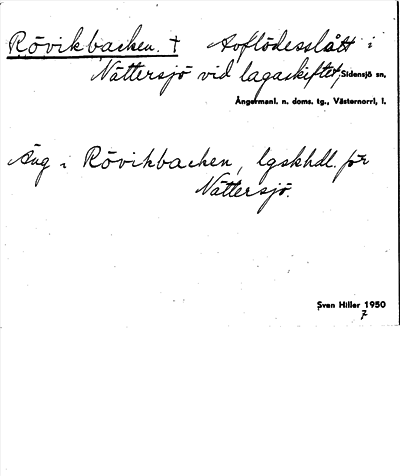 Rövikbacken. † Avflödesslått i
Nättersjö vid lagaskiftet, Sidensjö sn,
Ångermanl. n. doms. tg., Västernorrl. l.
Äng i Rövikbacken, lgskhdl. för
Nättersjö.
Sven Hiller 1950
7